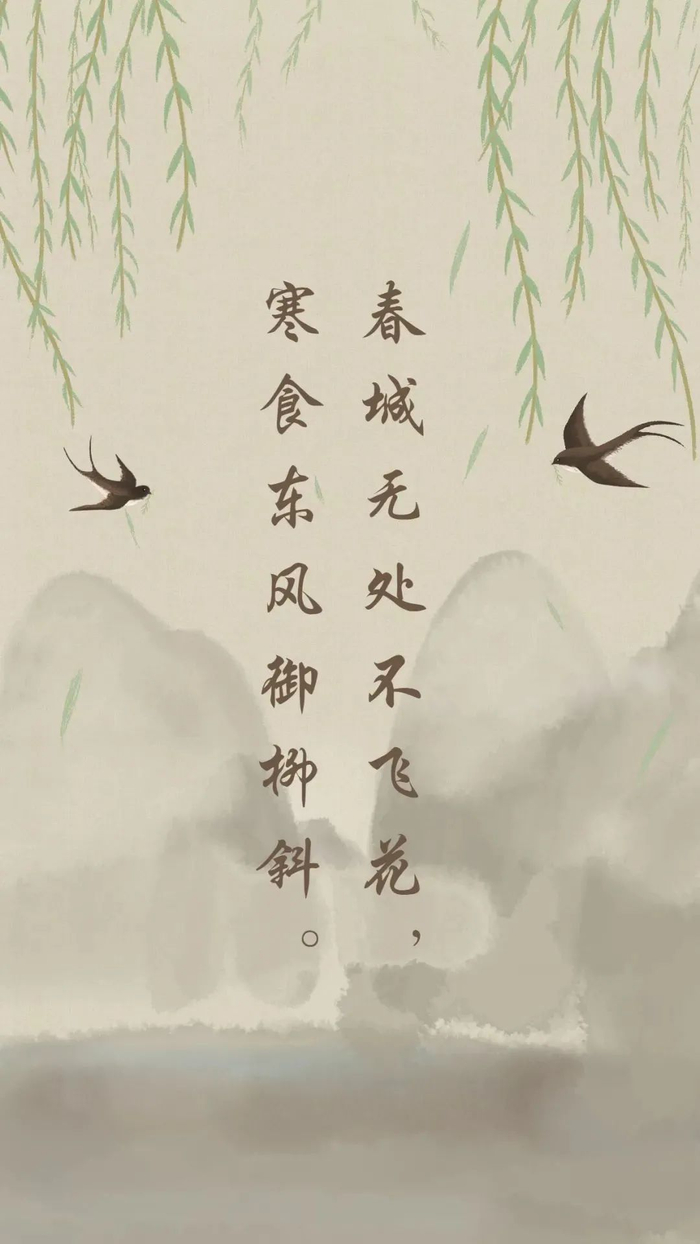 春城无处不飞花，
寒食东风御柳斜。